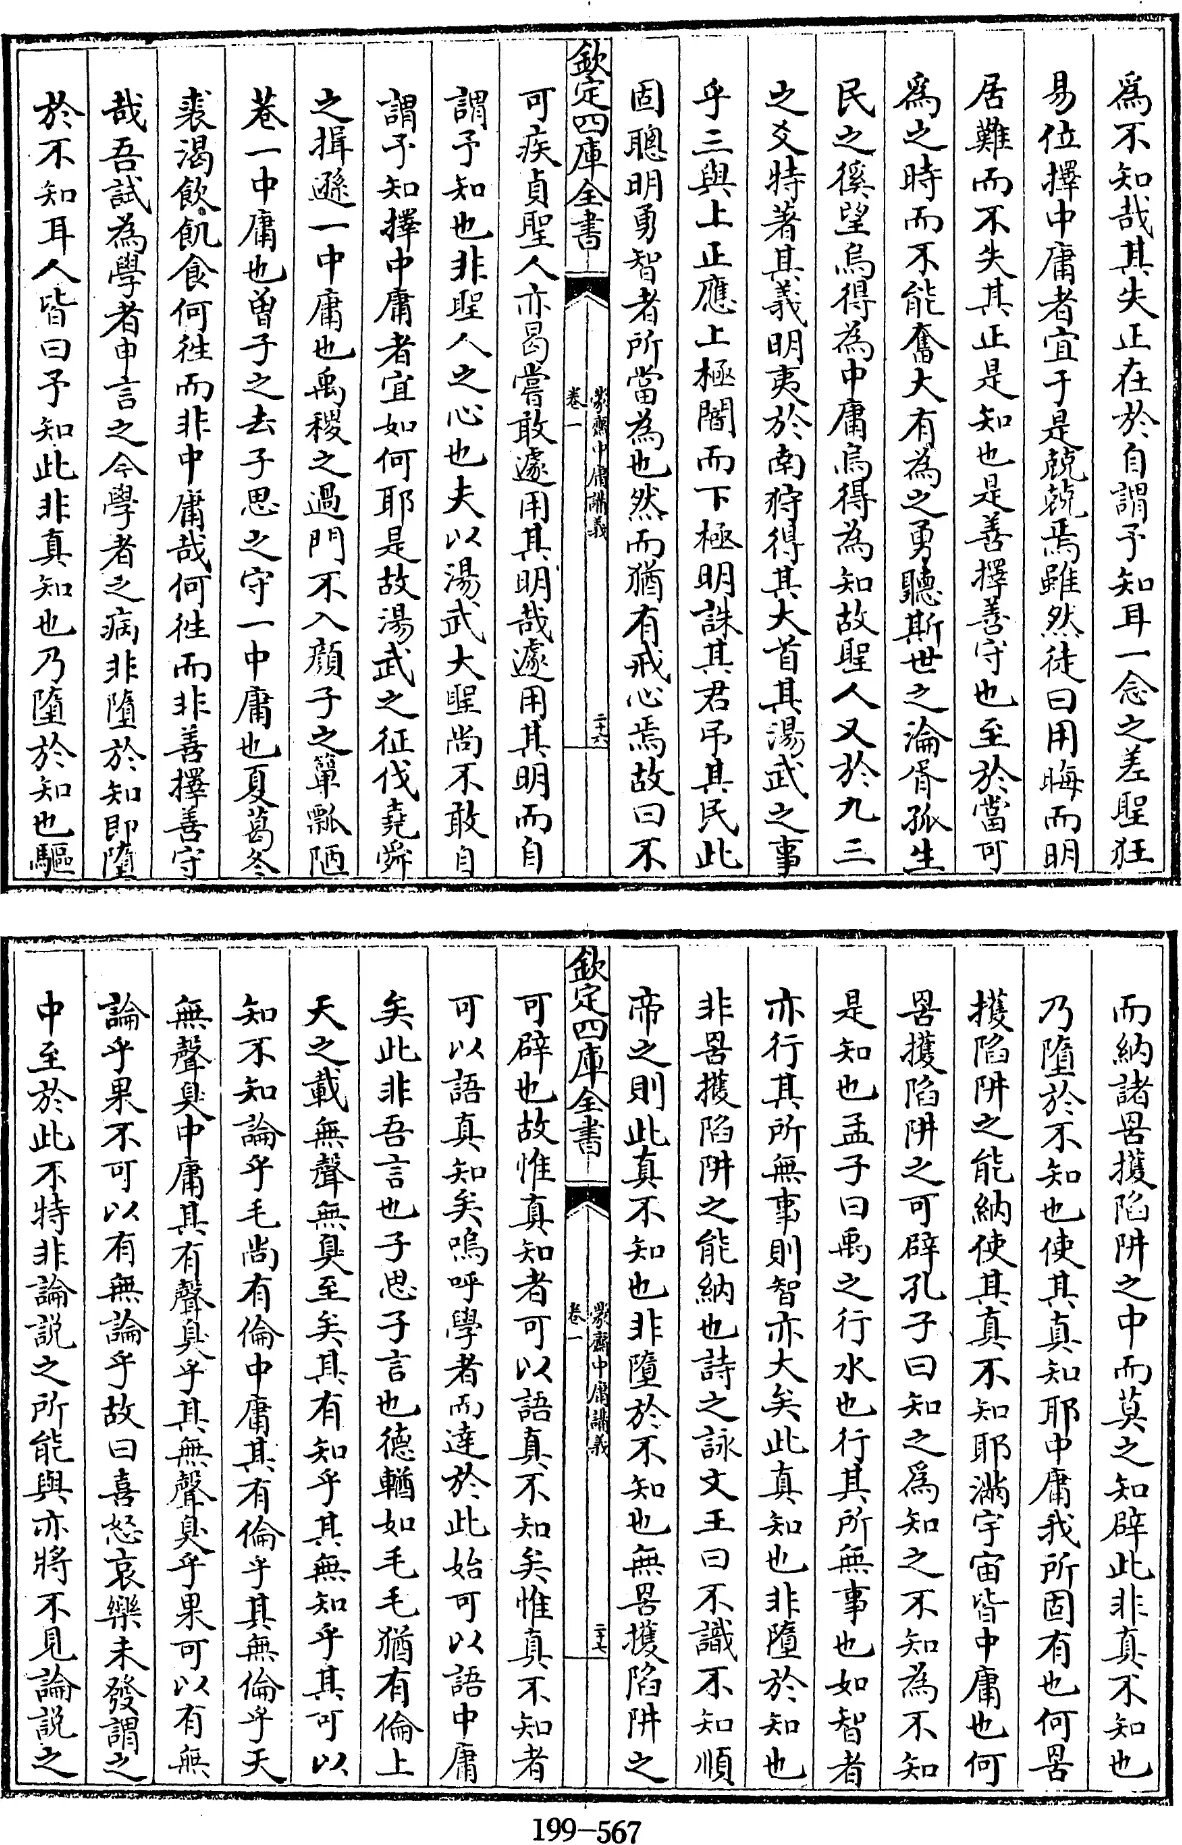 爲不知哉其失正在於自謂予知耳一念之差聖狂
易位擇中庸者宜于是兢兢焉雖然徒曰用晦而明
居難而不失其正是知也是善擇善守也至於當可
爲之時而不能奮大有為之勇聽斯世之淪胥孤生
民之徯望烏得為中庸烏得為知故聖人又於九三
之爻特著其義明夷於南狩得其大首其湯武之事
乎三與上正應上極闇而下極明誅其君弔其民此
固聰明勇智者所當為也然而猶有戒心焉故曰不
欽定四庫全書
蒙齋中庸講義
卷一
二十六
可疾貞聖人亦曷嘗敢遽用其明哉遽用其明而自
謂予知也非聖人之心也夫以湯武大聖尚不敢自
謂予知擇中庸者宜如何耶是故湯武之征伐堯舜
之揖遜一中庸也禹稷之過門不入顔子之簞瓢陋
巷一中庸也曾子之去子思之守一中庸也夏葛冬
裘渴飲飢食何徃而非中庸哉何徃而非善擇善守
哉吾試為學者申言之今學者之病非墮於知即墮
於不知耳人皆曰予知此非真知也乃墮於知也驅
而納諸罟擭陷阱之中而莫之知辟此非真不知也
乃墮於不知也使其真知耶中庸我所固有也何罟
擭陷阱之能納使其真不知耶滿宇宙皆中庸也何
罟擭陷阱之可辟孔子曰知之爲知之不知為不知
是知也孟子曰禹之行水也行其所無事也如智者
亦行其所無事則智亦大矣此真知也非墮於知也
非罟擭陷阱之能納也詩之詠文王曰不識不知順
帝之則此真不知也非墮於不知也無罟擭陷阱之
欽定四庫全書
蒙齋中庸講義
卷一
二十七
可辟也故惟真知者可以語真不知矣惟真不知者
可以語真知矣嗚呼學者而達於此始可以語中庸
矣此非吾言也子思子言也德輶如毛毛猶有倫上
天之載無聲無臭至矣其有知乎其無知乎其可以
知不知論乎毛尚有倫中庸其有倫乎其無倫乎天
無聲臭中庸其有聲臭乎其無聲臭乎果可以有無
論乎果不可以有無論乎故曰喜怒哀樂未發謂之
中至於此不特非論説之所能與亦將不見論説之
199-567